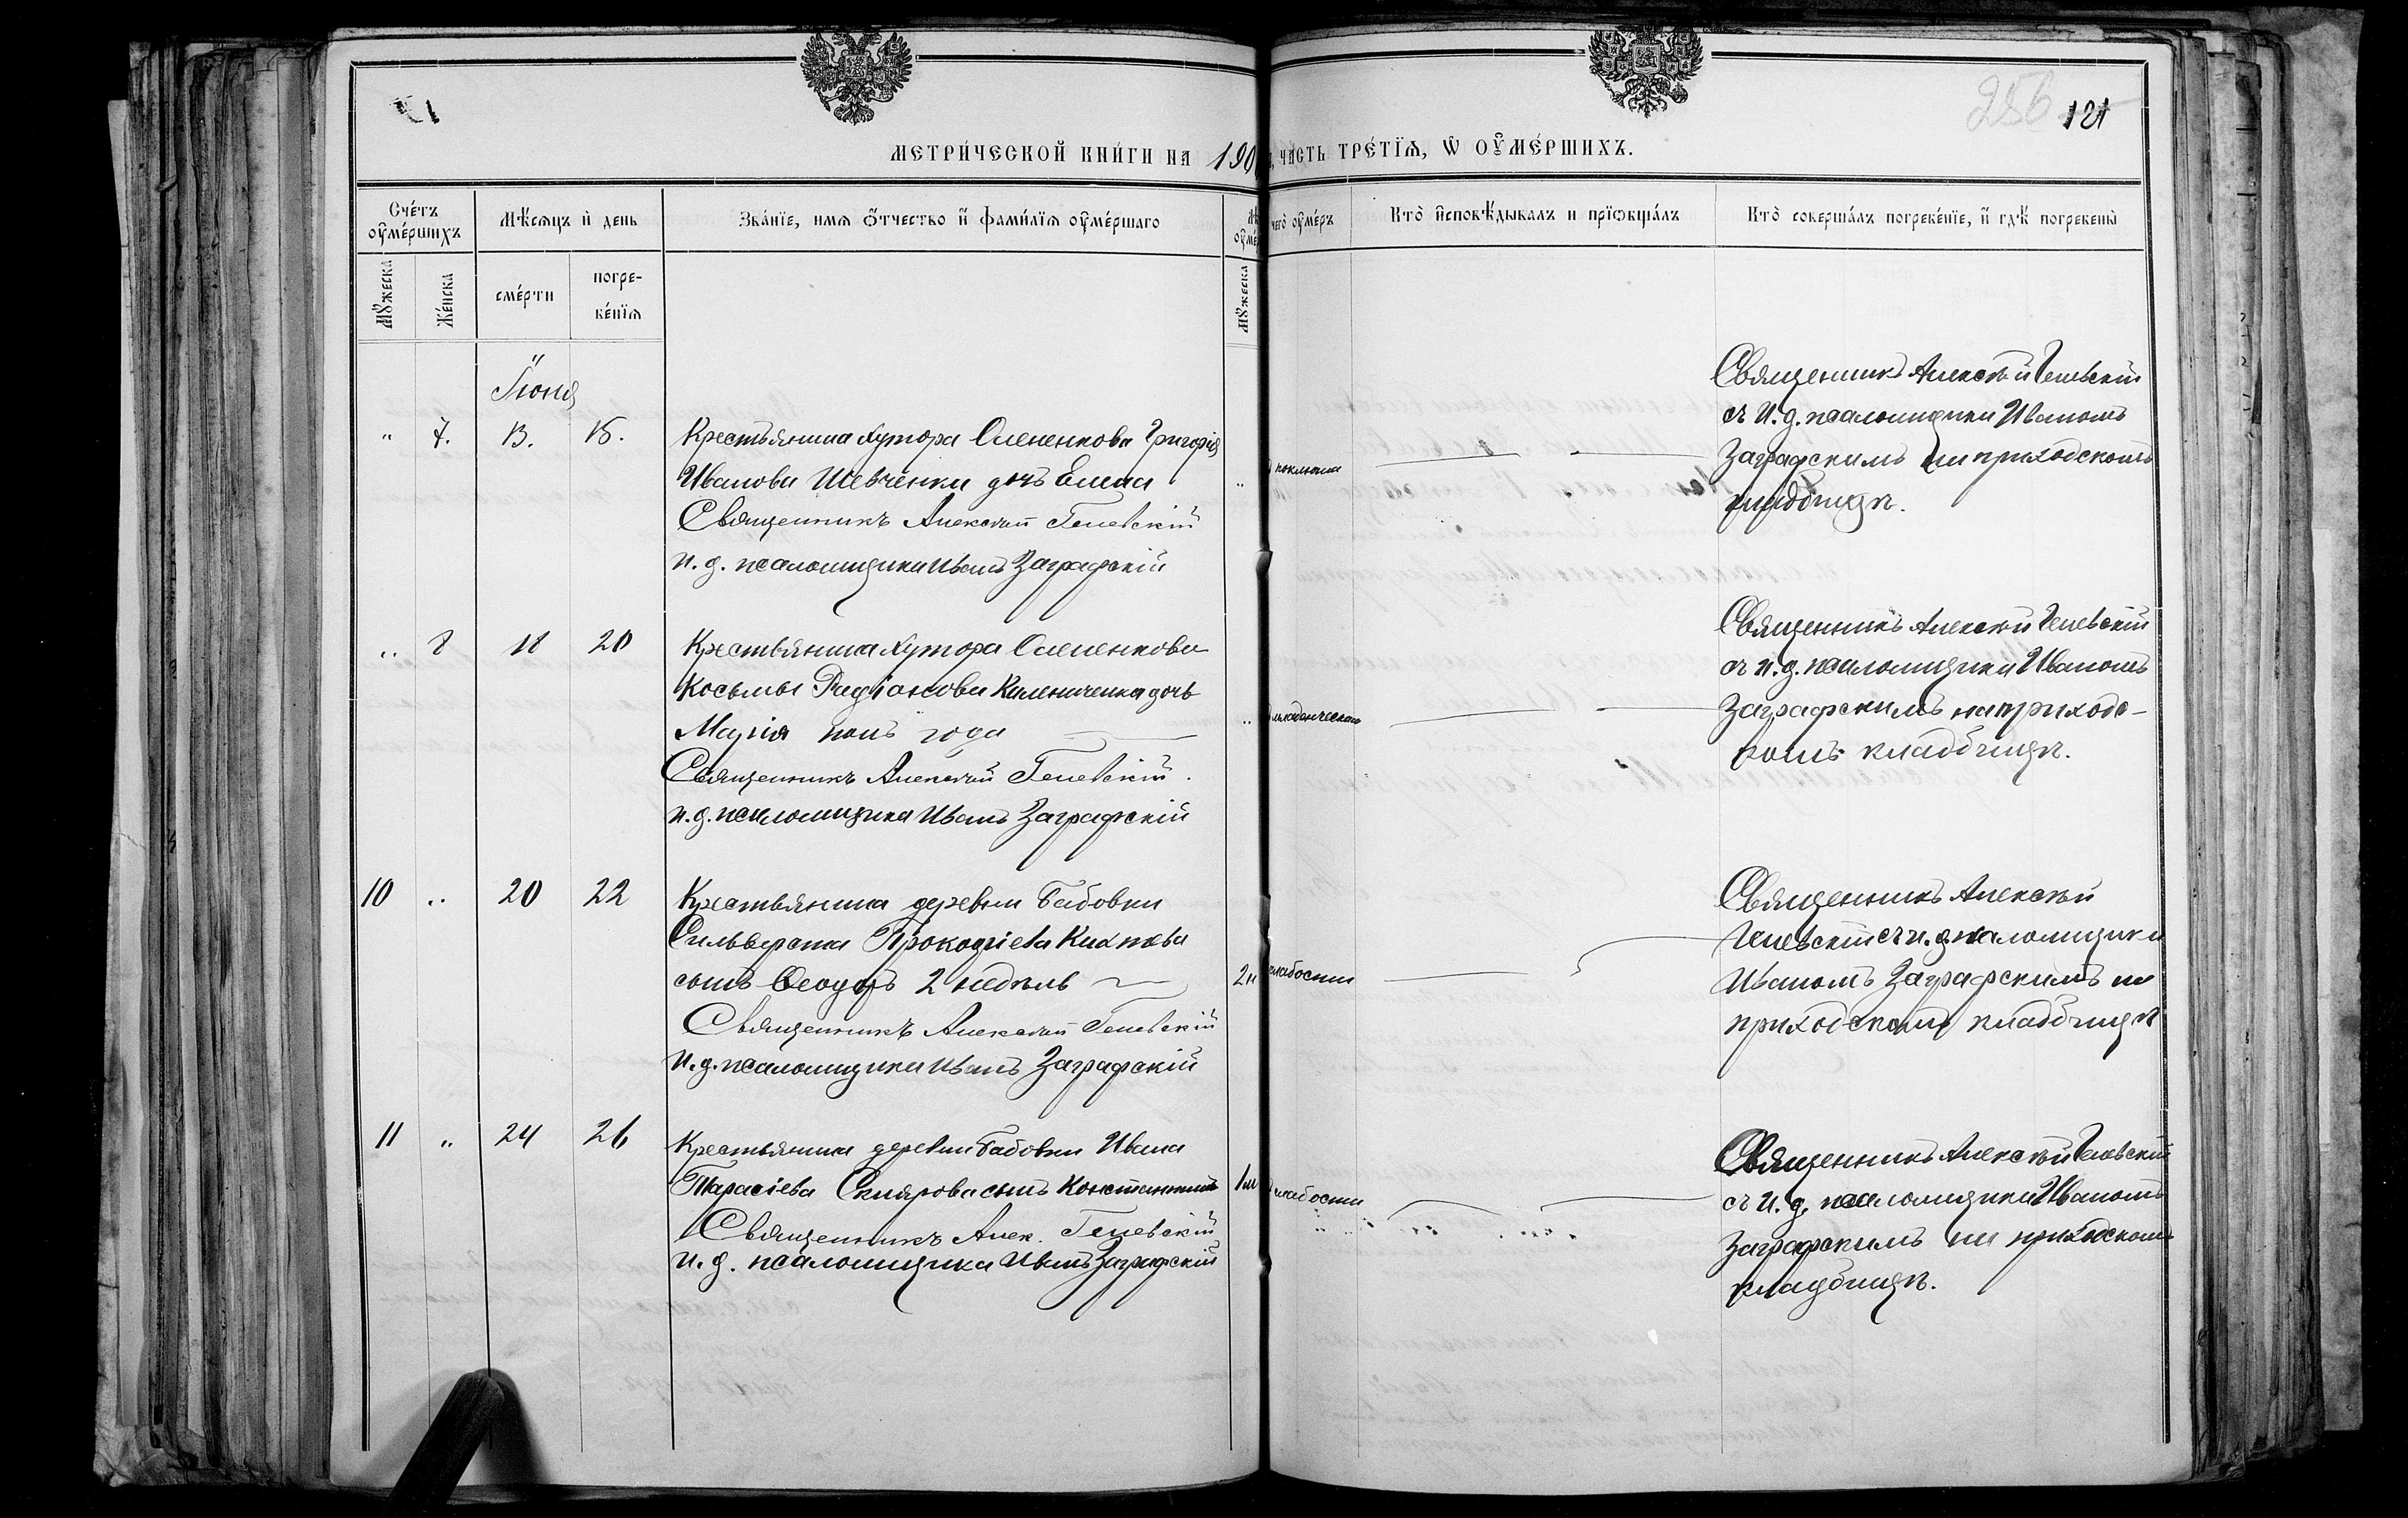 256 121
МЕТРИЧЕСКОЙ КНИГИ НА 190 ЧАСТЬ ТРЕТІѦ, Ѡ ОУМЕРШИХЪ.
Счетъ оумершихъ
Мѣсяцъ и день
Званіе, имя отчество и фамилія оумершаго
чего оумеръ
Кто исповѣдывалъ и пріобщалъ
Кто совершалъ погребеніе, и гдѣ погребены
Мужеска
Женска
смерти
погре-
бенія
Мужеска
Іюня
" 7. 13. 15.
Крестьянина хутора Олененкова Григорія
Иванова Шевченки дочь Елена
Священникъ Алексѣй Геневскій
И. д. псаломщика Иванъ Заграфскій
коклюша
Священникъ Алексѣй Геневскій
съ И. д. псаломщика Иваномъ
Заграфскимъ на приходскомъ
кладбищѣ.
" 8 18 20
Крестьянина хутора Олененкова
Косьмы Радіонова Калениченка дочь
Марія полъ года
Священникъ Алексѣй Геневскій.
и. д. псаломщика Иванъ Заграфскій
младенческой
Священникъ Алексѣй Геневскій
съ и. д. псаломщика Иваномъ
Заграфскимъ на приходс-
комъ кладбищѣ.
10 " 20 22
Крестьянина деревни Бабовки
Сильверста Прокофіева
сынъ Ѳеодоръ 2 недѣль
Священникъ Алексѣй Геневскій
И. д. псаломщика Иванъ Заграфскій
2н
слабости
Священникъ Алексѣй
Геневскій съ и. д. псаломщика
Иваномъ Заграфскимъ на
приходскомъ кладбищѣ
11 " 24 26
Крестьянина деревни Бабовки Ивана
Тарасіева Склярова сынъ Константинъ
Священникъ Алек. Геневскій
И. д. псаломщика Иванъ Заграфскій
1м
слабости
Священникъ Алексѣй Геневскій
съ И. д. псаломщика Иваномъ
Заграфскимъ на приходскомъ
кладбищѣ.